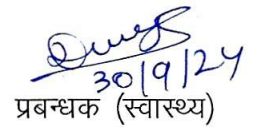 30/9/24
प्रबन्धक (स्वास्थ्य)